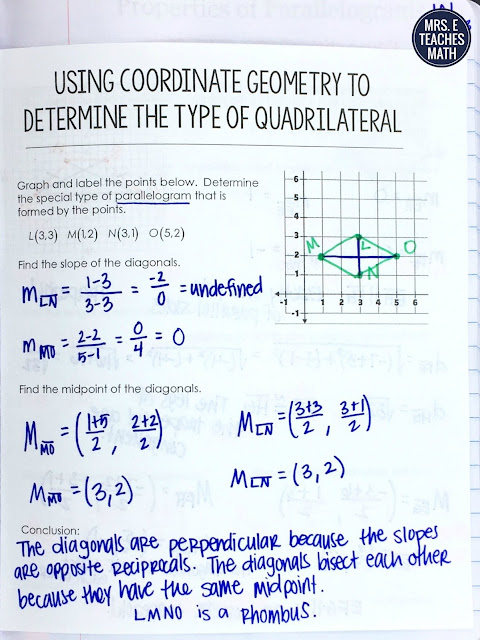 MRS. E
TEACHES
MATH
USING COORDINATE GEOMETRY TO
DETERMINE THE TYPE OF QUADRILATERAL
Graph and label the points below. Determine
the special type of parallelogram that is
formed by the points.
L(3,3) M(1,2) N(3,1) O(5,2)
6
5
4
3
2
1
-1
-1 1 2 3 4 5 6
M L O N
Find the slope of the diagonals.
m LN = 1-3/3-3 = -2/0 = undefined
m MO = 2-2/5-1 = 0/4 = 0
Find the midpoint of the diagonals.
M MO = (1+5/2, 2+2/2)
M LN = (3+3/2, 3+1/2)
M MO = (3,2)
M LN = (3,2)
Conclusion:
The diagonals are perpendicular because the slopes
are opposite reciprocals. The diagonals bisect each other
because they have the same midpoint.
LMNO is a rhombus.